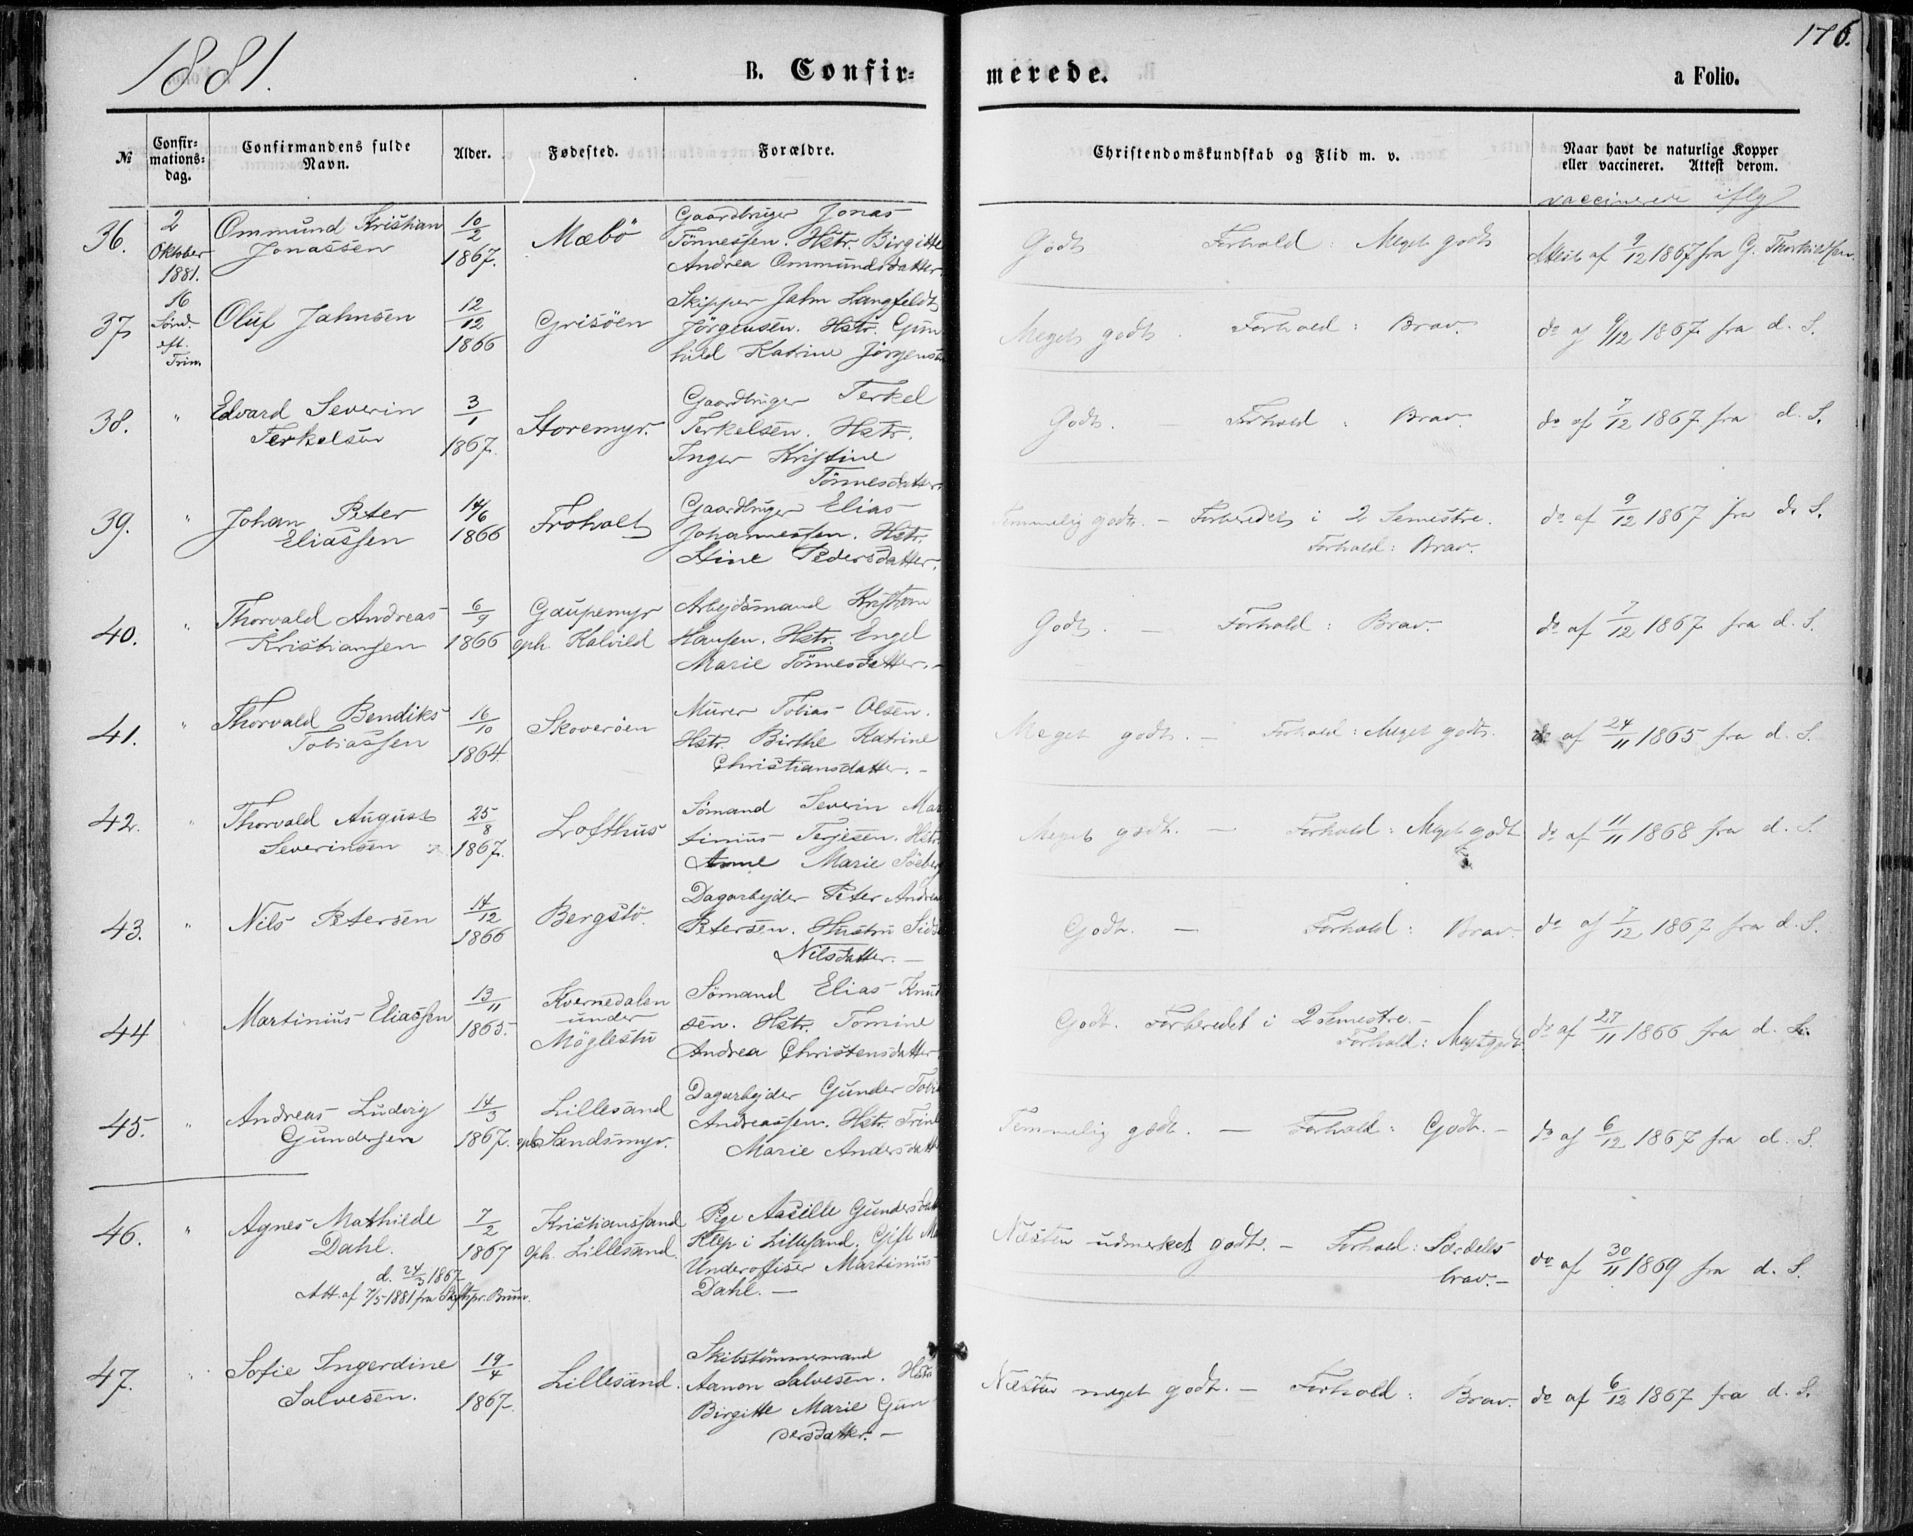 1881.
B. Confir-
merede.
176.
a Folio.
№
Confir-
mations-
dag.
Confirmandens fulde
Navn.
Alder.
Fødested.
Forældre.
Christendomskundskab og Flid m. v.
Naar havt de naturlige Kopper
eller vaccineret. Attest derom.
vaccinerede iflg
36.
2
Oktober
1881.
16
Sönd.
eft.
Trin.
Ommund Kristian
Jonassen
10/2
1867.
Mæbö
Gaardbruger Jonas
Tönnessen. Hstr. Birgitte
Andrea Ommundsdatter.
Godt Forhold: Meget godt
Attest af 9/12 1867 fra G. Thorkildsen.
37.
Oluf Jahnsen
12/12
1866
Grisöen
Skipper Jahn Langfeldt
Jörgensen. Hstr. Gun
hild Katrine Jörgensen
Meget godt Forhold: Brav.
do af 9/12 1867 fra d. S.
38.
"
Edvard Severin
Terkelsen
3/1
1867.
Storemyr.
Gaardbruger Terkel
Terkelsen. Hstr.
Inger Kristine
Tönnesdatter.
Godt. – Forhold: Brav.
do af 7/12 1867 fra d. S.
39.
"
Johan Peter
Eliassen
14/6
1866
Froholt
Gaardbruger Elias
Johannessen. Hstr.
Stine Pedersdatter.
Temmelig godt. – Forberedet i 2 Semestre.
Forhold: Brav.
do af 9/12 1867 fra d. S.
40.
"
Thorvald Andreas
Kristiansen
6/9
1866
Gaupemyr
oph. Kalvild
Arbejdsmand Kristian
Hansen. Hstr. Engel
Marie Tönnesdatter. –
Godt. – Forhold: Brav.
do af 7/12 1867 fra d. S.
41.
"
Thorvald Bendiks
Tobiassen
16/10
1864.
Skoveröen
Murer Tobias Olsen.
Hstr. Birthe Katrine
Christiansdatter. –
Meget godt. – Forhold: Meget godt.
do af 24/11 1865 fra d. S.
42.
"
Thorvald August
Severinsen
25/8
1867.
Lofthus
Sömand Severin Mar
tinius Terjesen. Hstr.
Anne Marie Söeberg
Meget godt. – Forhold: Meget godt
do af 11/11 1868 fra d. S.
43.
"
Nils Petersen
14/12
1866
Bergstö.
Dagarbejder Peter Andreas
Petersen. Hustru
Nilsdatter. –
Godt. – Forhold: Brav.
do af 7/12 1867 fra d. S.
44
"
Martinius Eliassen
13/11
1865.
Kvernedalen
under
Möglestu
Sömand Elias Knut
sen. Hstr. Tomine
Andrea Christensdatter
Godt. Forberedet i 2 Semestre. –
Forhold: Meget godt.
do af 27/11 1866 fra d. S.
45.
"
Andreas Ludvig
Gundersen
14/3
1867.
Lillesand
oph. Sandsmyr.
Dagarbejder Gunder Tobias
Andreassen. Hstr. Trine
Marie Andersdatter
Temmelig godt. – Forhold: Godt. –
do af 6/12 1867 fra d. S.
46.
"
Agnes Mathilde
Dahl.
d. 24/3 1867
Att. af 7/5 1881 fra Stiftspr. Brun.
7/2
1867
Kristianssand
oph. Lillesand.
Pige Aasille Gundersdatter
Klep i Lillesand. Gift M
Underofiser Martinius
Dahl. –
Næsten udmerket godt. – Forhold: Særdeles
brav. –
do af 30/11 1869 fra d. S.
47.
"
Sofie Ingerdine
Salvesen.
19/4
1867.
Lillesand.
Skibstömmermand
Aanon Salvesen. Hstr
Birgitte Marie Gun
dersdatter. –
Næsten meget godt. – Forhold: Brav.
do af 6/12 1867 fra d. S.